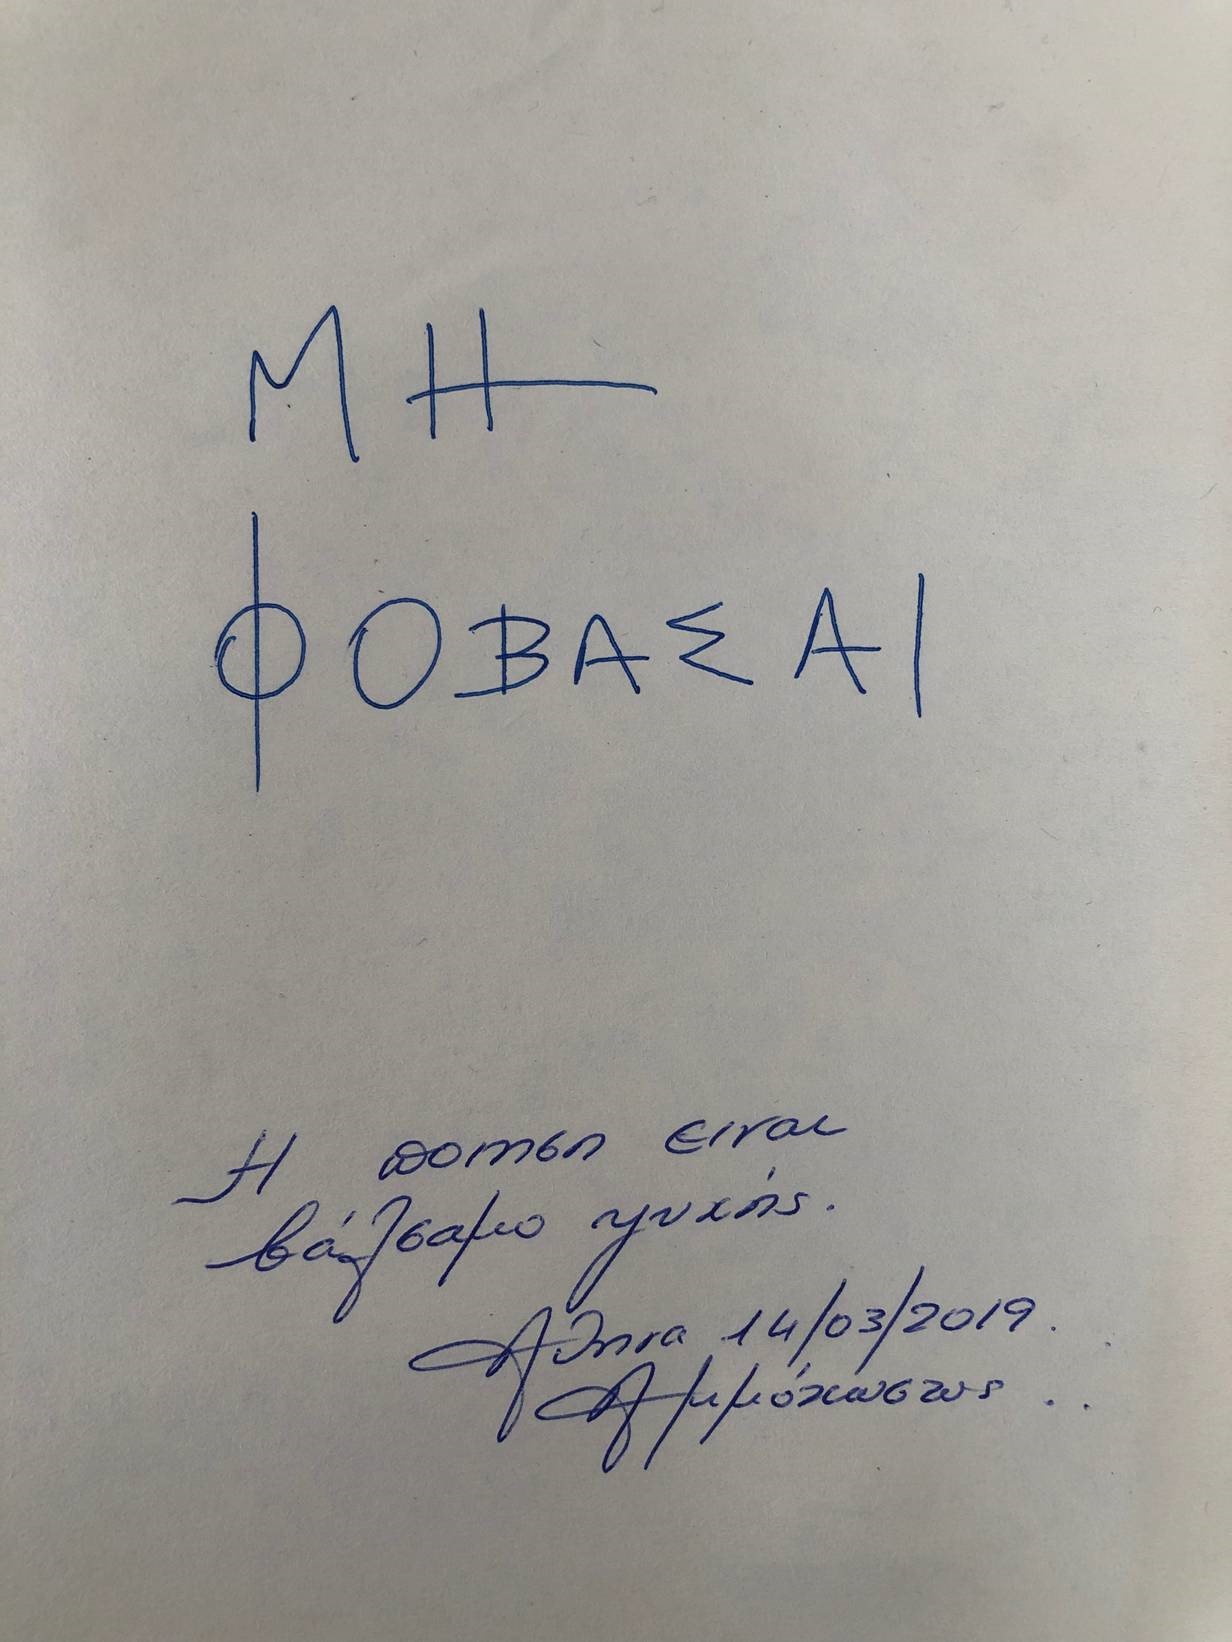 ΜΗ
ΦΟΒΑΣΑΙ
Η ποιηση ειναι
βάλσαμο ψυχής.
Αθηνα 14/03/2019.
Αμμόχωστος ..